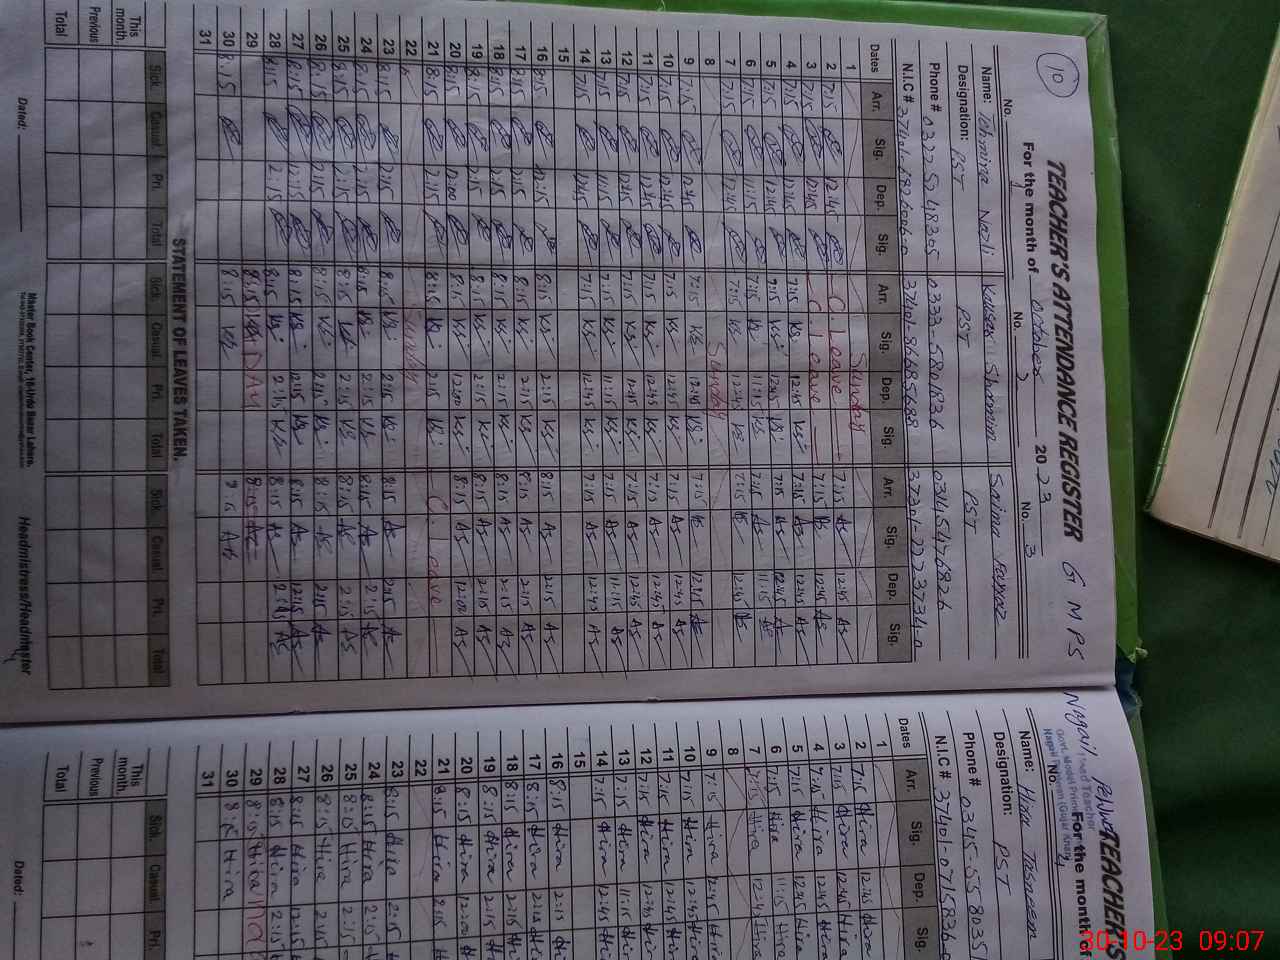 10
TEACHER'S ATTENDANCE REGISTER G M P S
For the month of October 2023
No. 1 No. 2 No. 3
Name: Tahmina Nazli Kausar Shamim Saima Fayyaz
Designation: PST PST PST
Phone # 0322 5248305 0333-5801836 03454476826
N.I.C #
Dates Arr. Sig. Dep. Sig. Arr. Sig. Dep. Sig. Arr. Sig. Dep. Sig.
1 Sunday
2 7:15 12:45 C. Leave 7:15 As 12:45 As
3 7:15 12:45 C. Leave 7:15 As 12:45 As
4 7:15 12:45 7:15 KS 12:45 KS 7:15 As 12:45 As
5 7:15 12:45 7:15 KS 12:45 KS 7:15 As 12:45 As
6 7:15 11:15 7:15 KS 11:15 KS 7:15 As 11:15 As
7 7:15 12:45 7:15 KS 12:45 KS 7:15 As 12:45 As
8 Sunday
9 7:15 12:45 7:15 KS 12:45 KS 7:15 As 12:45 As
10 7:15 12:45 7:15 KS 12:45 KS 7:15 As 12:45 As
11 7:15 12:45 7:15 KS 12:45 KS 7:15 As 12:45 As
12 7:15 12:45 7:15 KS 12:45 KS 7:15 As 12:45 As
13 7:15 11:15 7:15 KS 11:15 KS 7:15 As 11:15 As
14 7:15 12:45 7:15 KS 12:45 KS 7:15 As 12:45 As
15
16 8:15 2:15 8:15 KS 2:15 KS 8:15 As 2:15 As
17 8:15 2:15 8:15 KS 2:15 KS 8:15 As 2:15 As
18 8:15 2:15 8:15 KS 2:15 KS 8:15 As 2:15 As
19 8:15 2:15 8:15 KS 2:15 KS 8:15 As 2:15 As
20 8:15 12:00 8:15 KS 12:00 KS 8:15 As 12:00 As
21 8:15 2:15 8:15 KS 2:15 KS C. Leave
22 Sunday
23 8:15 2:15 8:15 KS 2:15 KS 8:15 As 2:15 As
24 8:15 2:15 8:15 KS 2:15 KS 8:15 As 2:15 As
25 8:15 2:15 8:15 KS 2:15 KS 8:15 As 2:15 As
26 8:15 2:15 8:15 KS 2:15 KS 8:15 As 2:15 As
27 8:15 12:15 8:15 KS 12:15 KS 8:15 As 12:15 As
28 8:15 2:15 8:15 KS 2:15 KS 8:15 As 2:15 As
29 8:15 8:15 As
30 8:15 8:15 KS
31
STATEMENT OF LEAVES TAKEN.
Sick Casual Pri. Total Sick Casual Pri. Total Sick Casual Pri. Total
This month.
Previous
Total
Dated: Master Book Center, 16-Urdu Bazar Lahore. Headmistress/Headmaster
Nagail
TEACHER'S
For the month of
No. 4
Name: Hira Tasneem
Designation: PST
Phone #
N.I.C #
Dates Arr. Sig. Dep. Sig.
1
2 7:15 Hira 12:45 Hira
3 7:15 Hira 12:45 Hira
4 7:15 Hira 12:45 Hira
5 7:15 Hira 12:45 Hira
6 7:15 Hira 11:15 Hira
7 7:15 Hira 12:45 Hira
8
9 7:15 Hira 12:45 Hira
10 7:15 Hira 12:45 Hira
11 7:15 Hira 12:45 Hira
12 7:15 Hira 12:45 Hira
13 7:15 Hira 11:15 Hira
14 7:15 Hira 12:45 Hira
15
16 8:15 Hira 2:15
17 8:15 Hira 2:15
18 8:15 Hira 2:15
19 8:15 Hira 2:15
20 8:15 Hira 12:00
21 8:15 Hira
22
23 8:15 Hira 2:15
24 8:15 Hira 2:15
25 8:15 Hira 2:15
26 8:15 Hira 2:15
27 8:15 Hira 12:15
28 8:15 Hira 2:15
29 8:15 Hira
30 8:15 Hira
31
Sick Casual Pri.
This month.
Previous
Total
Dated:
30-10-23 09:07